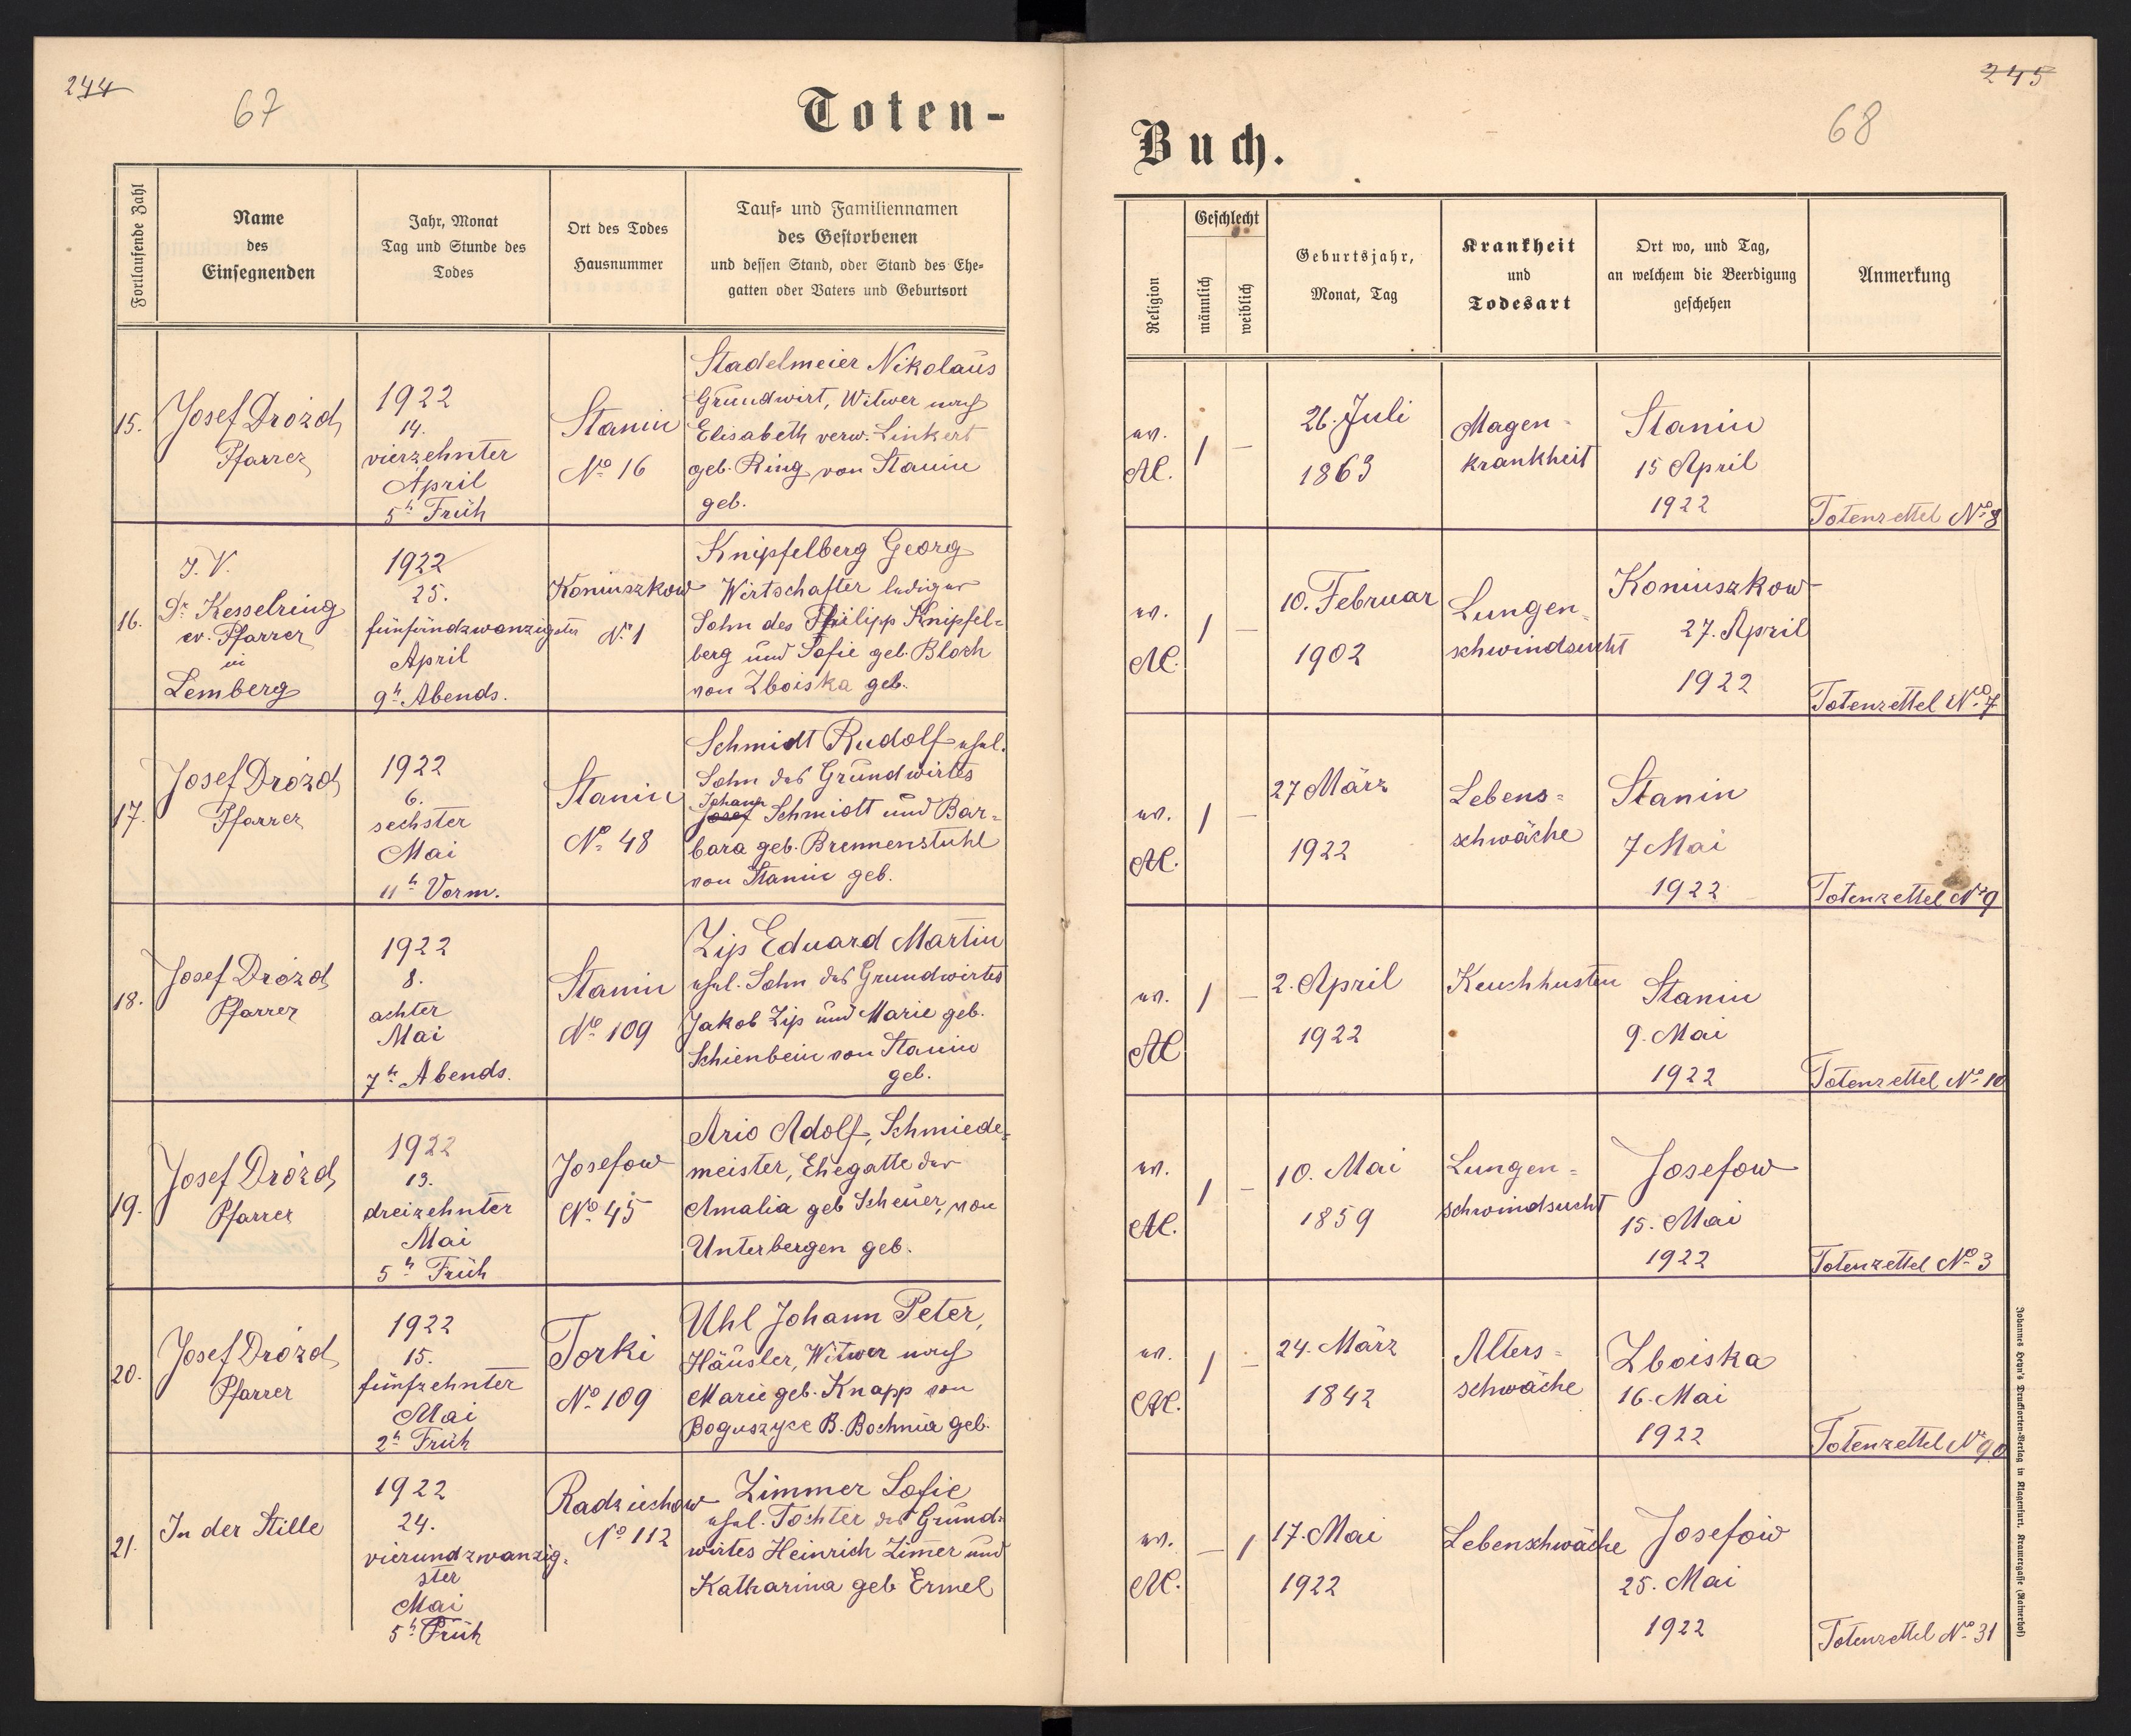 244
67
Toten-
Fortlaufende Zahl
Name
des
Einsegnenden
Jahr, Monat
Tag und Stunde des
Todes
Ort des Todes
Hausnummer
Tauf- und Familiennamen
des Gestorbenen
und dessen Stand, oder Stand des Ehe-
gatten oder Vaters und Geburtsort
15.
Josef Drozd
Pfarrer
1922
14.
vierzehnter
April
5h Früh
Stanin
No 16
Stadelmeier Nikolaus
Grundwirt, Witwer nach
Elisabeth verw. Linkert
geb. Ring, von Stanin
geb.
16.
I. V.
Dr. Kesselring
ev. Pfarrer
in
Lemberg
1922
25.
fünfundzwanzigster
April
9h Abends.
Koniuszkow
No 1
Knipfelberg Georg
Wirtschafter lediger
Sohn des Philipp Knipfel-
berg und Sofie geb. Bloch
von Zboiska geb.
17.
Josef Drozd
Pfarrer
1922
6.
sechster
Mai
11h Vorm.
Stanin
No 48
Schmidt Rudolf ehel.
Sohn des Grundwirtes
Johann
Josef Schmidt und Bar-
bara geb. Brennenstuhl
von Stanin geb.
18.
Josef Drozd
Pfarrer
1922
8.
achter
Mai
7h Abends.
Stanin
No 109
Zip Eduard Martin
ehel. Sohn des Grundwirtes
Jakob Zip und Marie geb.
Schienbein von Stanin
geb.
19.
Josef Drozd
Pfarrer
1922
13.
dreizehnter
Mai
5h Früh
Josefow
No 45
Ario Adolf, Schmiede-
meister, Ehegatte der
Amalia geb Scheuer, von
Unterbergen geb.
20.
Josef Drozd
Pfarrer
1922
15.
fünfzehnter
Mai
2h Früh
Torki
No 109
Uhl Johann Peter,
Häusler, Witwer nach
Marie geb. Knapp von
Boguszyce B. Bochnia geb.
21.
In der Stille
1922
24.
vierundzwanzig-
ster
Mai
5h Früh
Radziechow
No 112
Zimmer Sofie
ehel. Tochter des Grund-
wirtes Heinrich Zimer und
Katharina geb Ermel
245
68
Buch.
Religion
Geschlecht
männlich
weiblich
Geburtsjahr,
Monat, Tag
Krankheit
und
Todesart
Ort wo, und Tag,
an welchem die Beerdigung
geschehen
Anmerkung
ev.
AC.
1
—
26. Juli
1863
Magen-
krankheit
Stanin
15 April
1922
Totenzettel No 8
ev.
AC.
1
—
10. Februar
1902
Lungen-
schwindsucht
Koniuszkow
27. April
1922
Totenzettel No 7
ev.
AC.
1
—
27 März
1922
Lebens-
schwäche
Stanin
7 Mai
1922
Totenzettel No 9
ev.
AC
1
—
2. April
1922
Keuchhusten
Stanin
9. Mai
1922
Totenzettel No 10
ev.
AC.
1
—
10. Mai
1859
Lungen-
schwindsucht
Josefow
15. Mai
1922
Totenzettel No 3
ev.
AC.
1
—
24. März
1842
Alters-
schwäche
Zboiska
16. Mai
1922
Totenzettel No 90
ev.
AC.
—
1
17. Mai
1922
Lebenschwäche
Josefow
25. Mai
1922
Totenzettel No 31